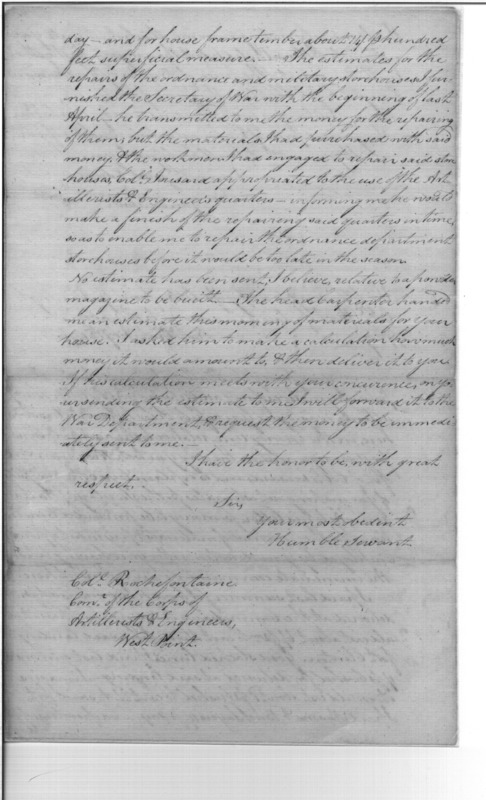 day — and for house frame timber about 14/ hundred
feet superficial measure. — The estimates for the
repairs of the ordnance and military storhouses I fur-
nished the Secretary of War with the beginning of last
April — he transmitted to me the money for the repairing
of them, but the materials I had purchased with said
money & the workmen I had engaged to repair said stor
houses, Colo. appropriated to the use of the Art-
illerists & Engineers quarters — informing me he would
make a finish of the repairing said quarters in time,
so as to enable me to repair the ordnance department
storhouses before it would be too late in the season.
No estimate has been sent, I believe, relative to a powder
magazine to be built. — The head Carpenter handed
me an estimate this morning of materials for your
house. I asked him to make a calculation how much
money it would amount to, & then deliver it to you.
If his calculation meets with your concurrence, on yo
ur sending the estimate to me I will forward it to the
War Department, & request the money to be immedi
ately sent to me. —
I have the honor to be, with great
respect.
Sir,
Your most obedient
Humble Servant
Colo. Rochefontaine
Comt. of the Corps of
Artillerists & Engineers,
West Point.